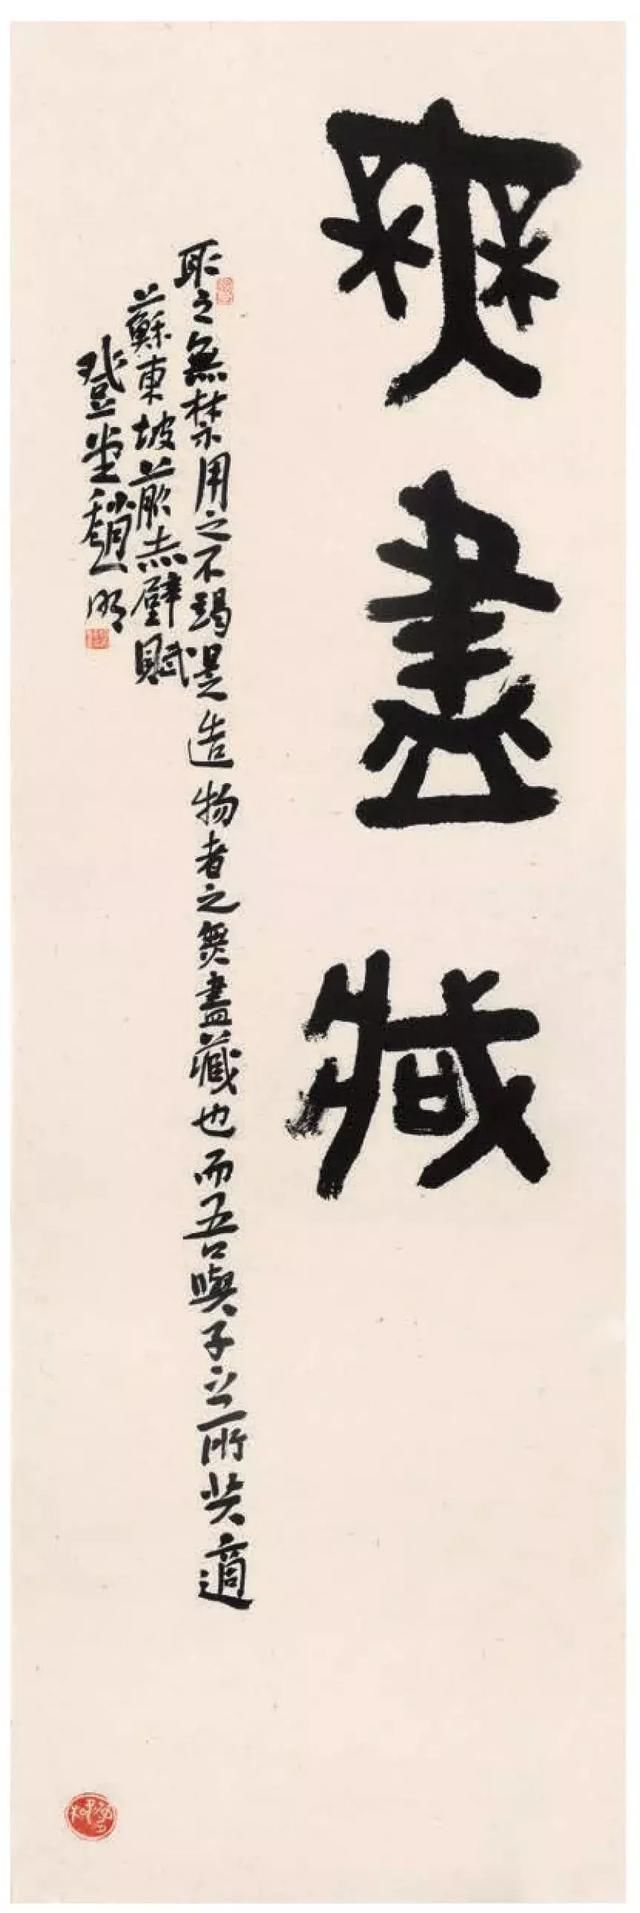 無盡藏
取之無禁用之不竭是造物者之無盡藏也而吾與子之所共適
蘇東坡前赤壁賦
登堂趙明